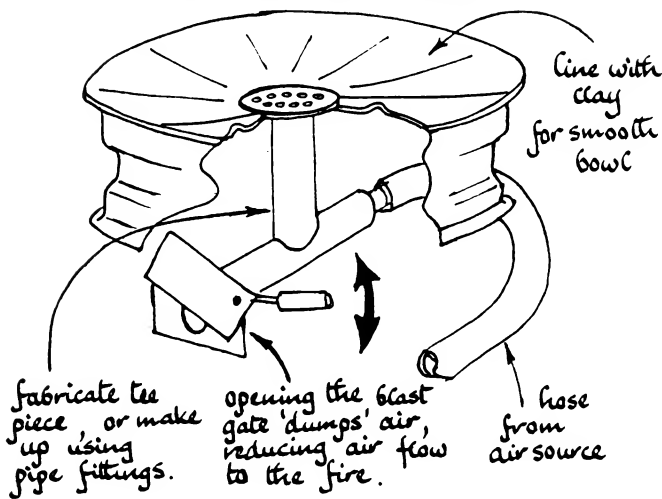 line with
clay
for smooth
bowl
fabricate tee
piece, or make
up using
pipe fittings.
opening the blast
gate 'dumps' air,
reducing air flow
to the fire.
hose
from
air source